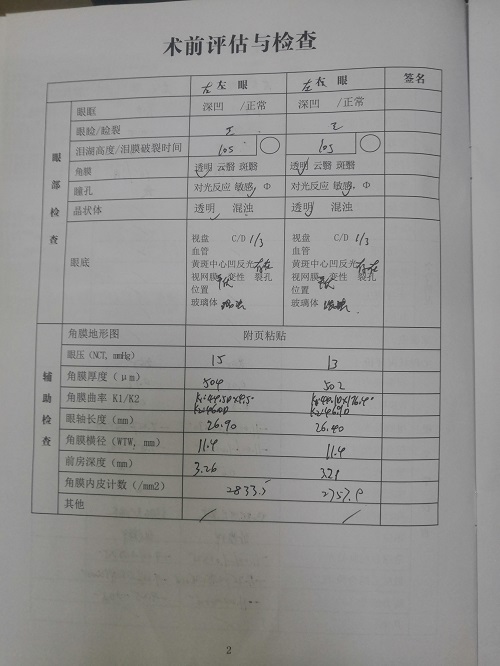 术前评估与检查
左 左 眼 左 右 眼 签名
眼部检查
眼眶 深凹 /正常 深凹 /正常
眼睑/睑裂
泪湖高度/泪膜破裂时间 10s 10s
角膜 透明 云翳 斑翳 透明 云翳 斑翳
瞳孔 对光反应 敏感, Φ 对光反应 敏感, Φ
晶状体 透明 混浊 透明 混浊
眼底
视盘 C/D 1/3 视盘 C/D 1/3
血管 血管
黄斑中心凹反光 存在 黄斑中心凹反光 存在
视网膜 平伏 变性 裂孔 视网膜 平伏 变性 裂孔
位置 位置
玻璃体 玻璃体
辅助检查
角膜地形图 附页粘贴
眼压 (NCT, mmHg) 15 13
角膜厚度 (μm) 504 502
角膜曲率 K1/K2
眼轴长度 (mm) 26.90 26.40
角膜横径 (WTW, mm) 11.4 11.4
前房深度 (mm) 3.26
角膜内皮计数 (/mm2) 2833.5 2757.9
其他 / /
2